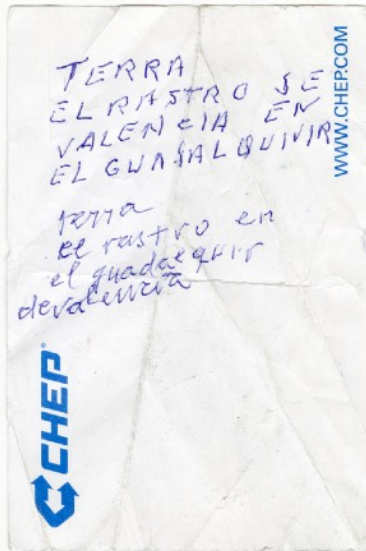 TERRA
EL RASTRO SE
VALENCIA EN
EL GUASALQUIVIR
terra
el rastro en
el guadalquir
devalencia
WWW.CHEP.COM
CHEP